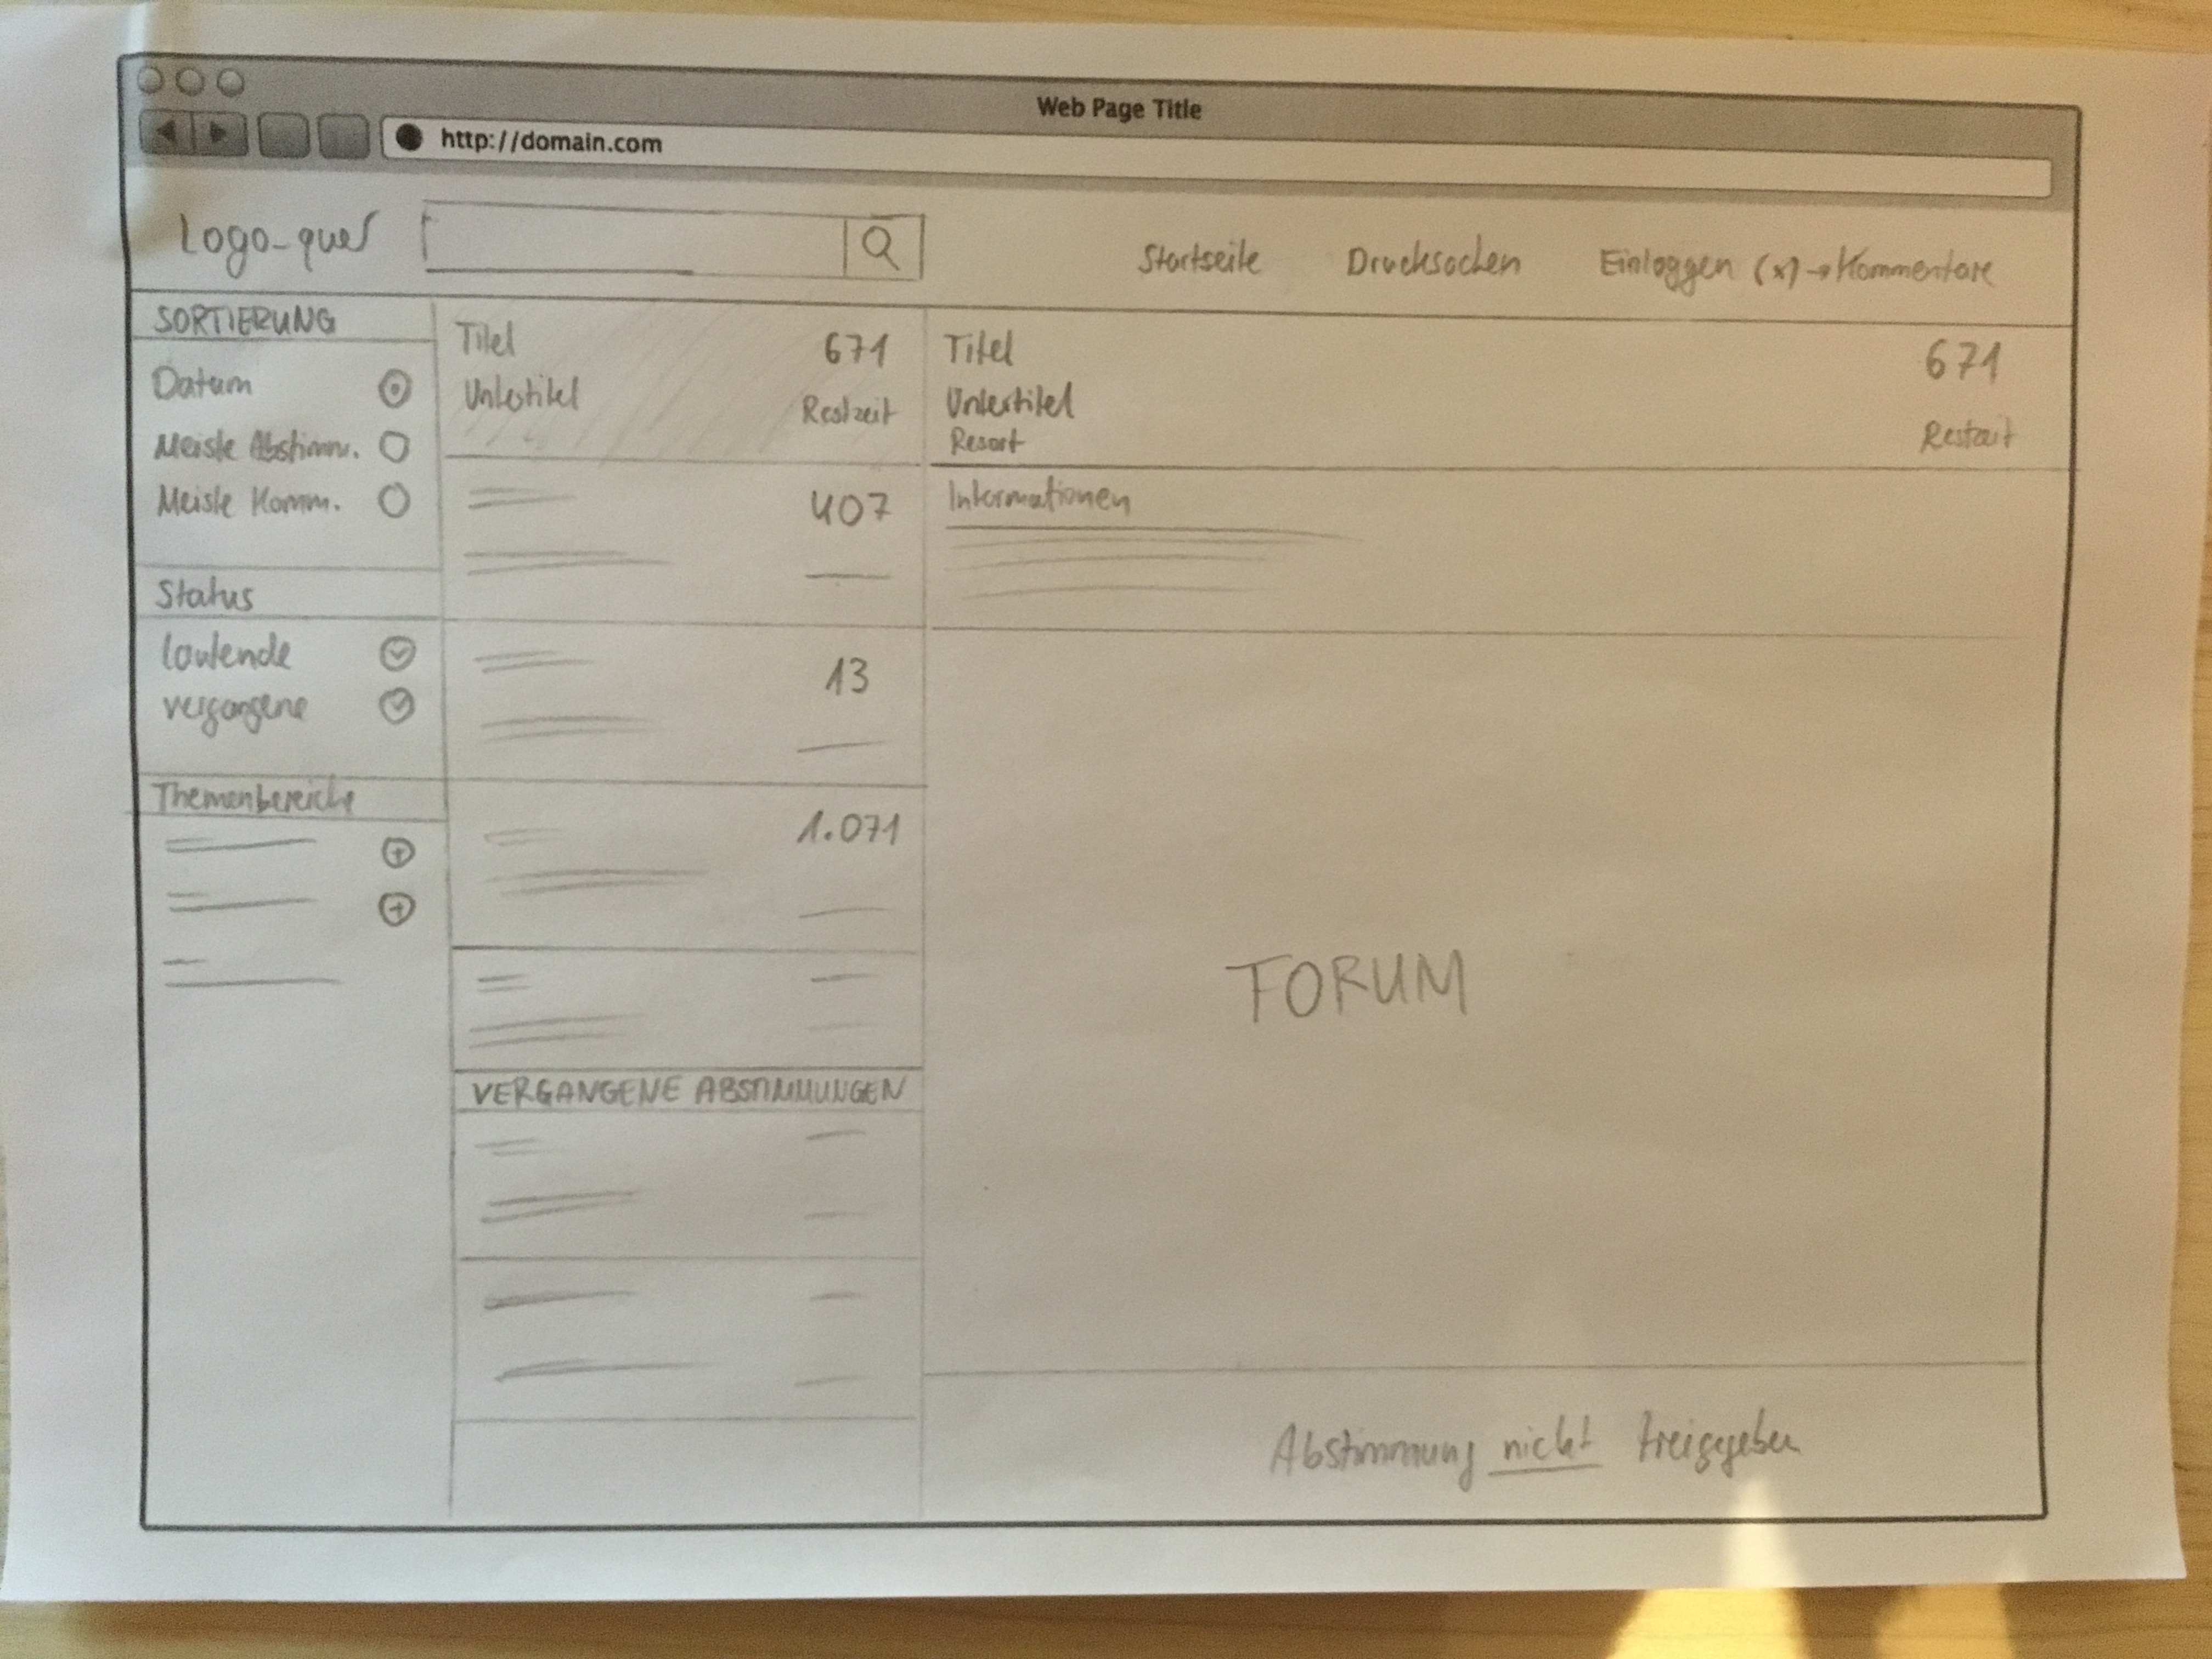 Web Page Title
http://domain.com
Logo-quer
Startseite Drucksachen Einloggen (x)→Kommentare
SORTIERUNG
Datum
Meiste Abstimm.
Meiste Komm.
Status
laufende
vergangene
Themenbereiche
Titel 671
Untertitel Restzeit
407
13
1.071
VERGANGENE ABSTIMMUNGEN
Titel 671
Untertitel
Resort Restzeit
Informationen
FORUM
Abstimmung nicht freigegeben